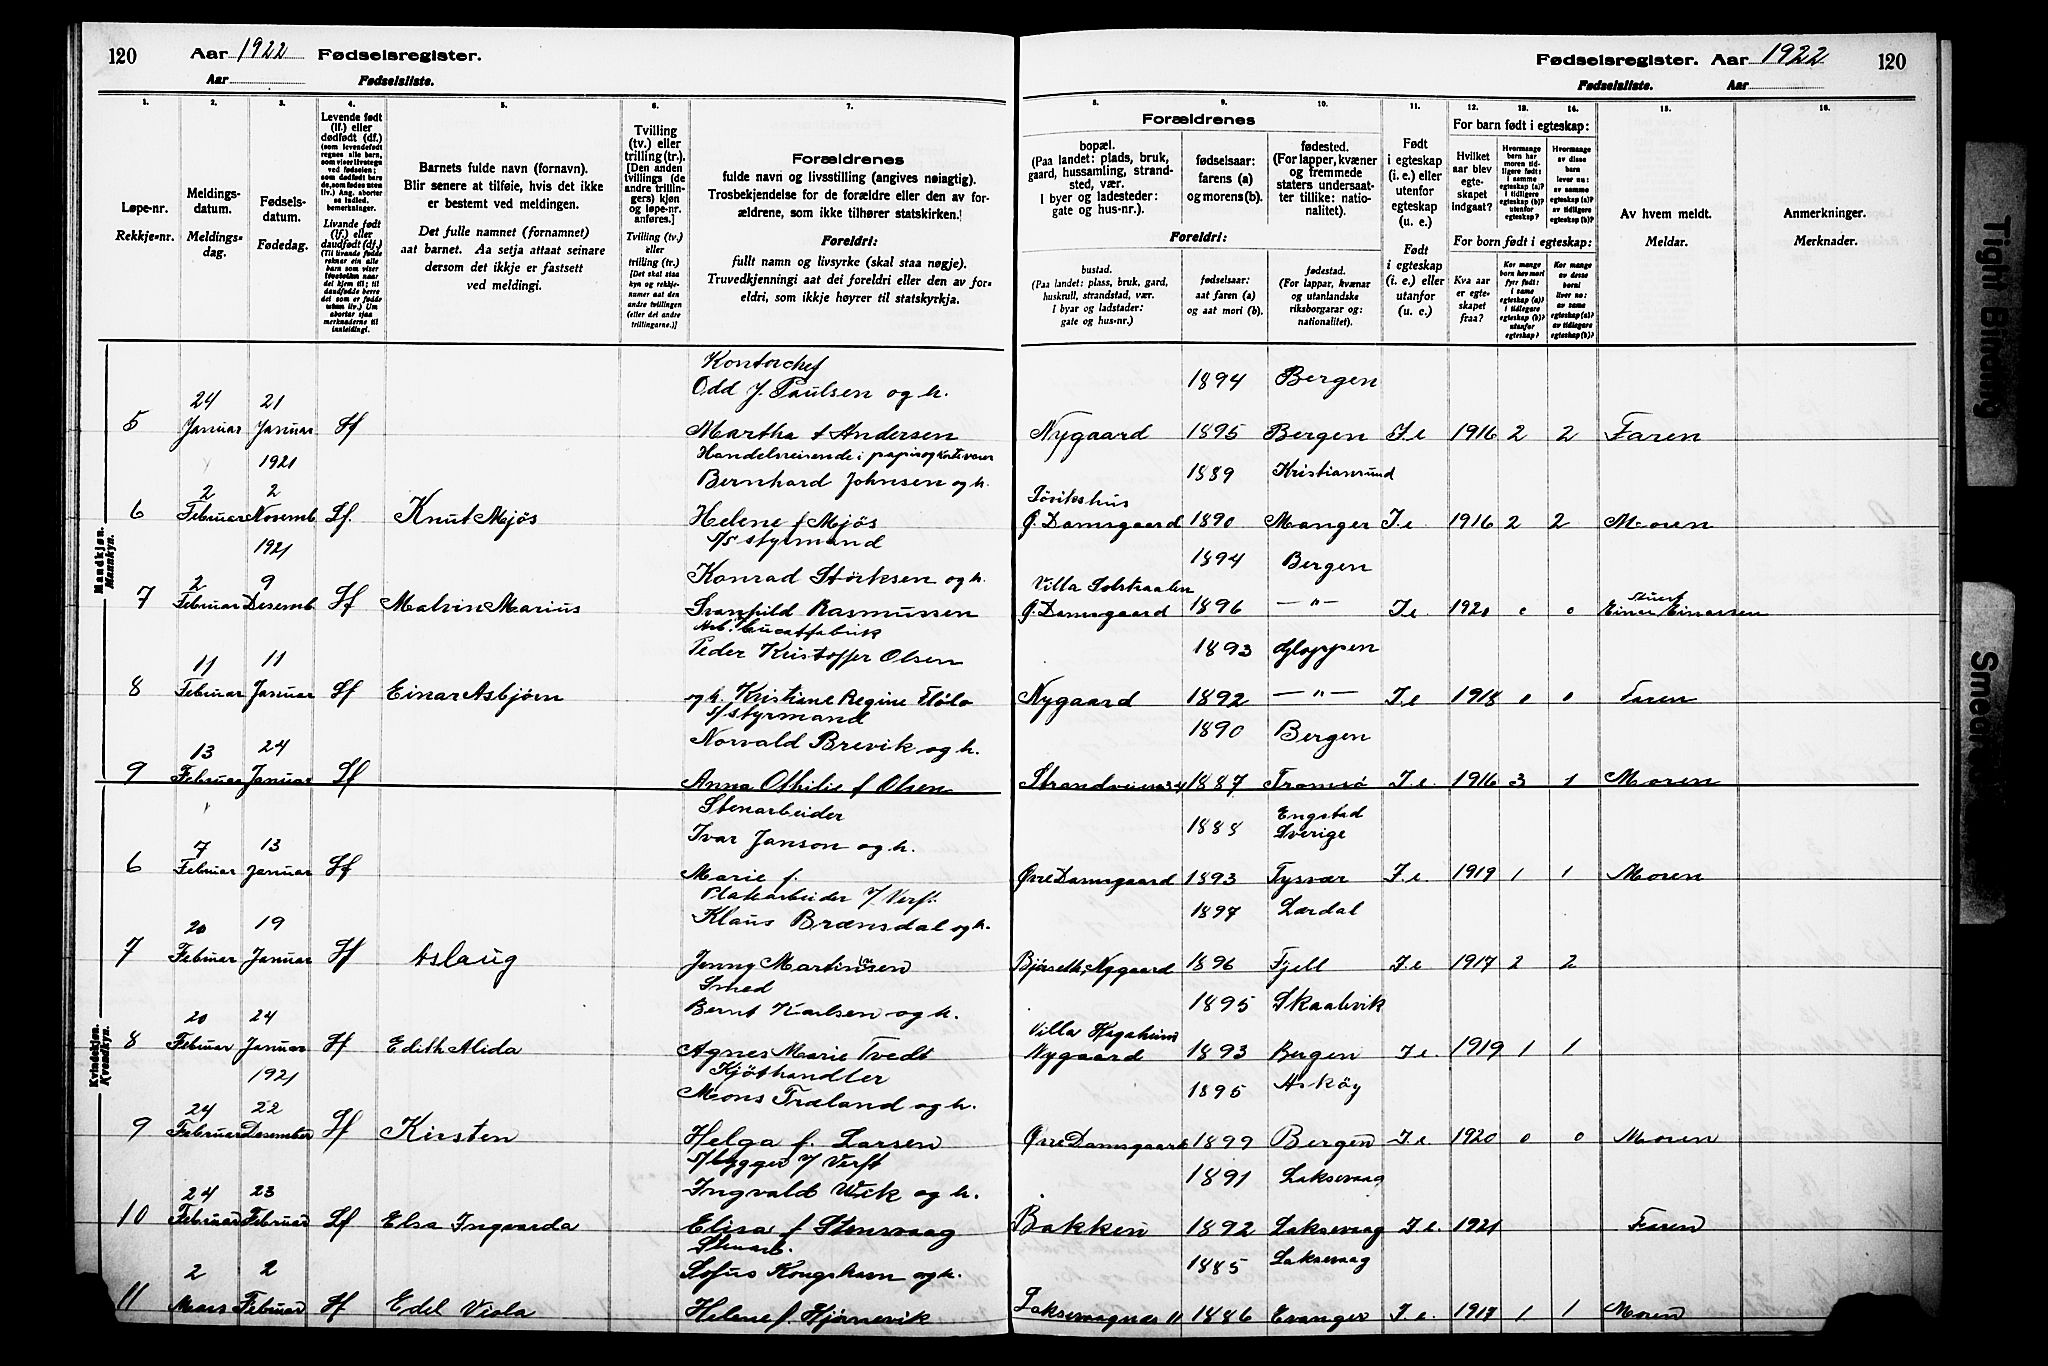 120 Aar 1922 Fødselsregister.
Aar Fødselsliste.
Fødselsregister. Aar 1922 120
Fødselsliste. Aar
1. 2. 3. 4. 5. 6. 7.
8. 9. 10. 11. 12. 13. 14. 15. 16.
Løpe-nr.
Rekkje-nr.
Meldings-
datum.
Meldings-
dag.
Fødsels-
datum.
Fødedag.
Levende født
(lf.) eller
dødfødt (df.)
Livande født
(lf.) eller
daudfødt (df.)
Barnets fulde navn (fornavn).
Blir senere at tilføie, hvis det ikke
er bestemt ved meldingen.
Det fulle namnet (fornamnet)
aat barnet. Aa setja attaat seinare
dersom det ikkje er fastsett
ved meldingi.
Tvilling
(tv.) eller
trilling (tr.).
[Den anden
tvillings (de
andre trillin-
gers) kjøn
og løpe-nr.
anføres.]
Tvilling (tv.)
eller
trilling (tr.)
Forældrenes
fulde navn og livsstilling (angives nøiagtig).
Trosbekjendelse for de forældre eller den av for-
ældrene, som ikke tilhører statskirken.
Foreldri:
fullt namn og livsyrke (skal staa nøgje).
Truvedkjenningi aat dei foreldri eller den av for-
eldri, som ikkje høyrer til statskyrkja.
Forældrenes
bopæl.
(Paa landet: plads, bruk,
gaard, hussamling, strand-
sted, vær.
I byer og ladesteder:
gate og hus-nr.).
fødselsaar:
farens (a)
og morens (b).
fødested.
(For lapper, kvæner
og fremmede
staters undersaat-
ter tillike: natio-
nalitet).
Foreldri:
bustad.
(Paa landet: plass, bruk, gard,
huskrull, strandstad, vær.
I byar og ladstader:
gate og hus-nr.)
fødselsaar:
aat faren (a)
og aat mori (b).
fødestad.
(For lappar, kvænar
og utanlandske
riksborgarar og:
nationalitet).
Født
i egteskap
(i. e.) eller
utenfor
egteskap
(u. e.)
Født
i egteskap
(i. e.) eller
utanfor
(u. e.)
For barn født i egteskap:
Hvilket
aar blev
egte-
skapet
indgaat?
For born født i egteskap:
Kva aar
er egte-
skapet
fraa?
Av hvem meldt.
Meldar.
Anmerkninger.
Merknader.
Mandkjøn.
Mannkyn.
Kontorchef
Odd J. Paulsen og h. 1894 Bergen
24 21
5 Januar Januar Lf Martha f Andersen Nygaard 1895 Bergen I e 1916 2 2 Faren
1921 Handelsreisende i papir og
Bernhard Johnsen og h. 1889 Kristiansund
2 2
6 Februar Novemb Lf. Knut Mjøs Helene f Mjøs Ø. Damsgaard 1890 Manger I e 1916 2 2 Moren
1921 S/S styrmand
Konrad Störksen og h. 1894 Bergen
2 9 Villa Solstraalen
7 Februar Desemb Lf Malvin Marius Svanhild Rasmussen Ø. Damsgaard 1896 —"— I e 1920 0 0 Einar Einarsen
Peder Kristoffer Olsen 1893 Gloppen
11 11
8 Februar Januar Lf Einar Asbjörn og h. Kristiane Regine Nygaard 1892 —"— I e 1918 0 0 Faren
S/styrmand
Norvald Brevik og h. 1890 Bergen
13 24
9 Februar Januar Lf Anna Othilie f Olsen 1887 Tromsö I e. 1916 3 1 Moren
Kvindekjøn.
Kvendkyn.
Stenarbeider
Ivar Janson og h. 1888 Engstad Sverige
7 13
6 Februar Januar Lf Marie f. Øvre Damsgaard 1893 Tysvær I e 1919 1 1 Moren
Platearbeider
Klaus Brænsdal og h. 1897 Lærdal
20 19
7 Februar Januar Lf Aslaug Jenny Martinsen Nygaard 1896 Fjell I e 1917 2 2
Smed
Bernt Karlsen og h. 1895 Skaalevik
20 24
8 Februar Januar Lf Edith Alida Agnes Marie Tvedt Villa Nygaard 1893 Bergen I e. 1919 1 1
1921 Kjöthandler
Mons Træland og h. 1895 Asköy
24 22
9 Februar Desember Lf Kirsten Helga f. Larsen Øvre Damsgaard 1899 Bergen I e. 1920 0 0 Moren
S/bygger Verft
Ingvald Wik og h. 1891 Laksevaag
24 23
10 Februar Februar Lf Elsa Ingvarda Elisa f Stensvaag Bakken 1892 Laksevaag I e. 1921 Faren
Stenarb.
Sofus Kongshavn og h. 1885 Laksevaag
2 2
11 Mars Februar Lf Edel Viola Helene f. Hjörnevik Laksevaagnes 11 1886 Evanger I e. 1917 1 1 Moren
Tight Binding